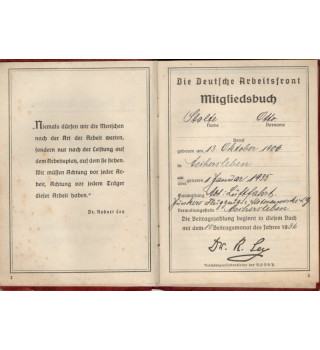 „Niemals dürfen wir die Menschen
nach der Art der Arbeit werten,
sondern nur nach der Leistung auf
dem Arbeitsplatz, auf dem sie stehen.
Wir müssen Achtung vor jeder Ar-
beit, Achtung vor jedem Träger
dieser Arbeit haben.“
Dr. Robert Ley
2
Die Deutsche Arbeitsfront
Mitgliedsbuch
Stolte Otto
Name Vorname
Beruf
geboren am 13. Oktober 1906
in Aschersleben
eingetreten 1. Januar 1935
Abt. Luftfahrt
Junkers Flugzeug- Motorenwerke
Verwaltungsstelle Aschersleben
Die Beitragszahlung beginnt in diesem Buch
mit dem Beitragsmonat des Jahres 1936
Dr. R. Ley
Reichsorganisationsleiter der NSDAP.
3